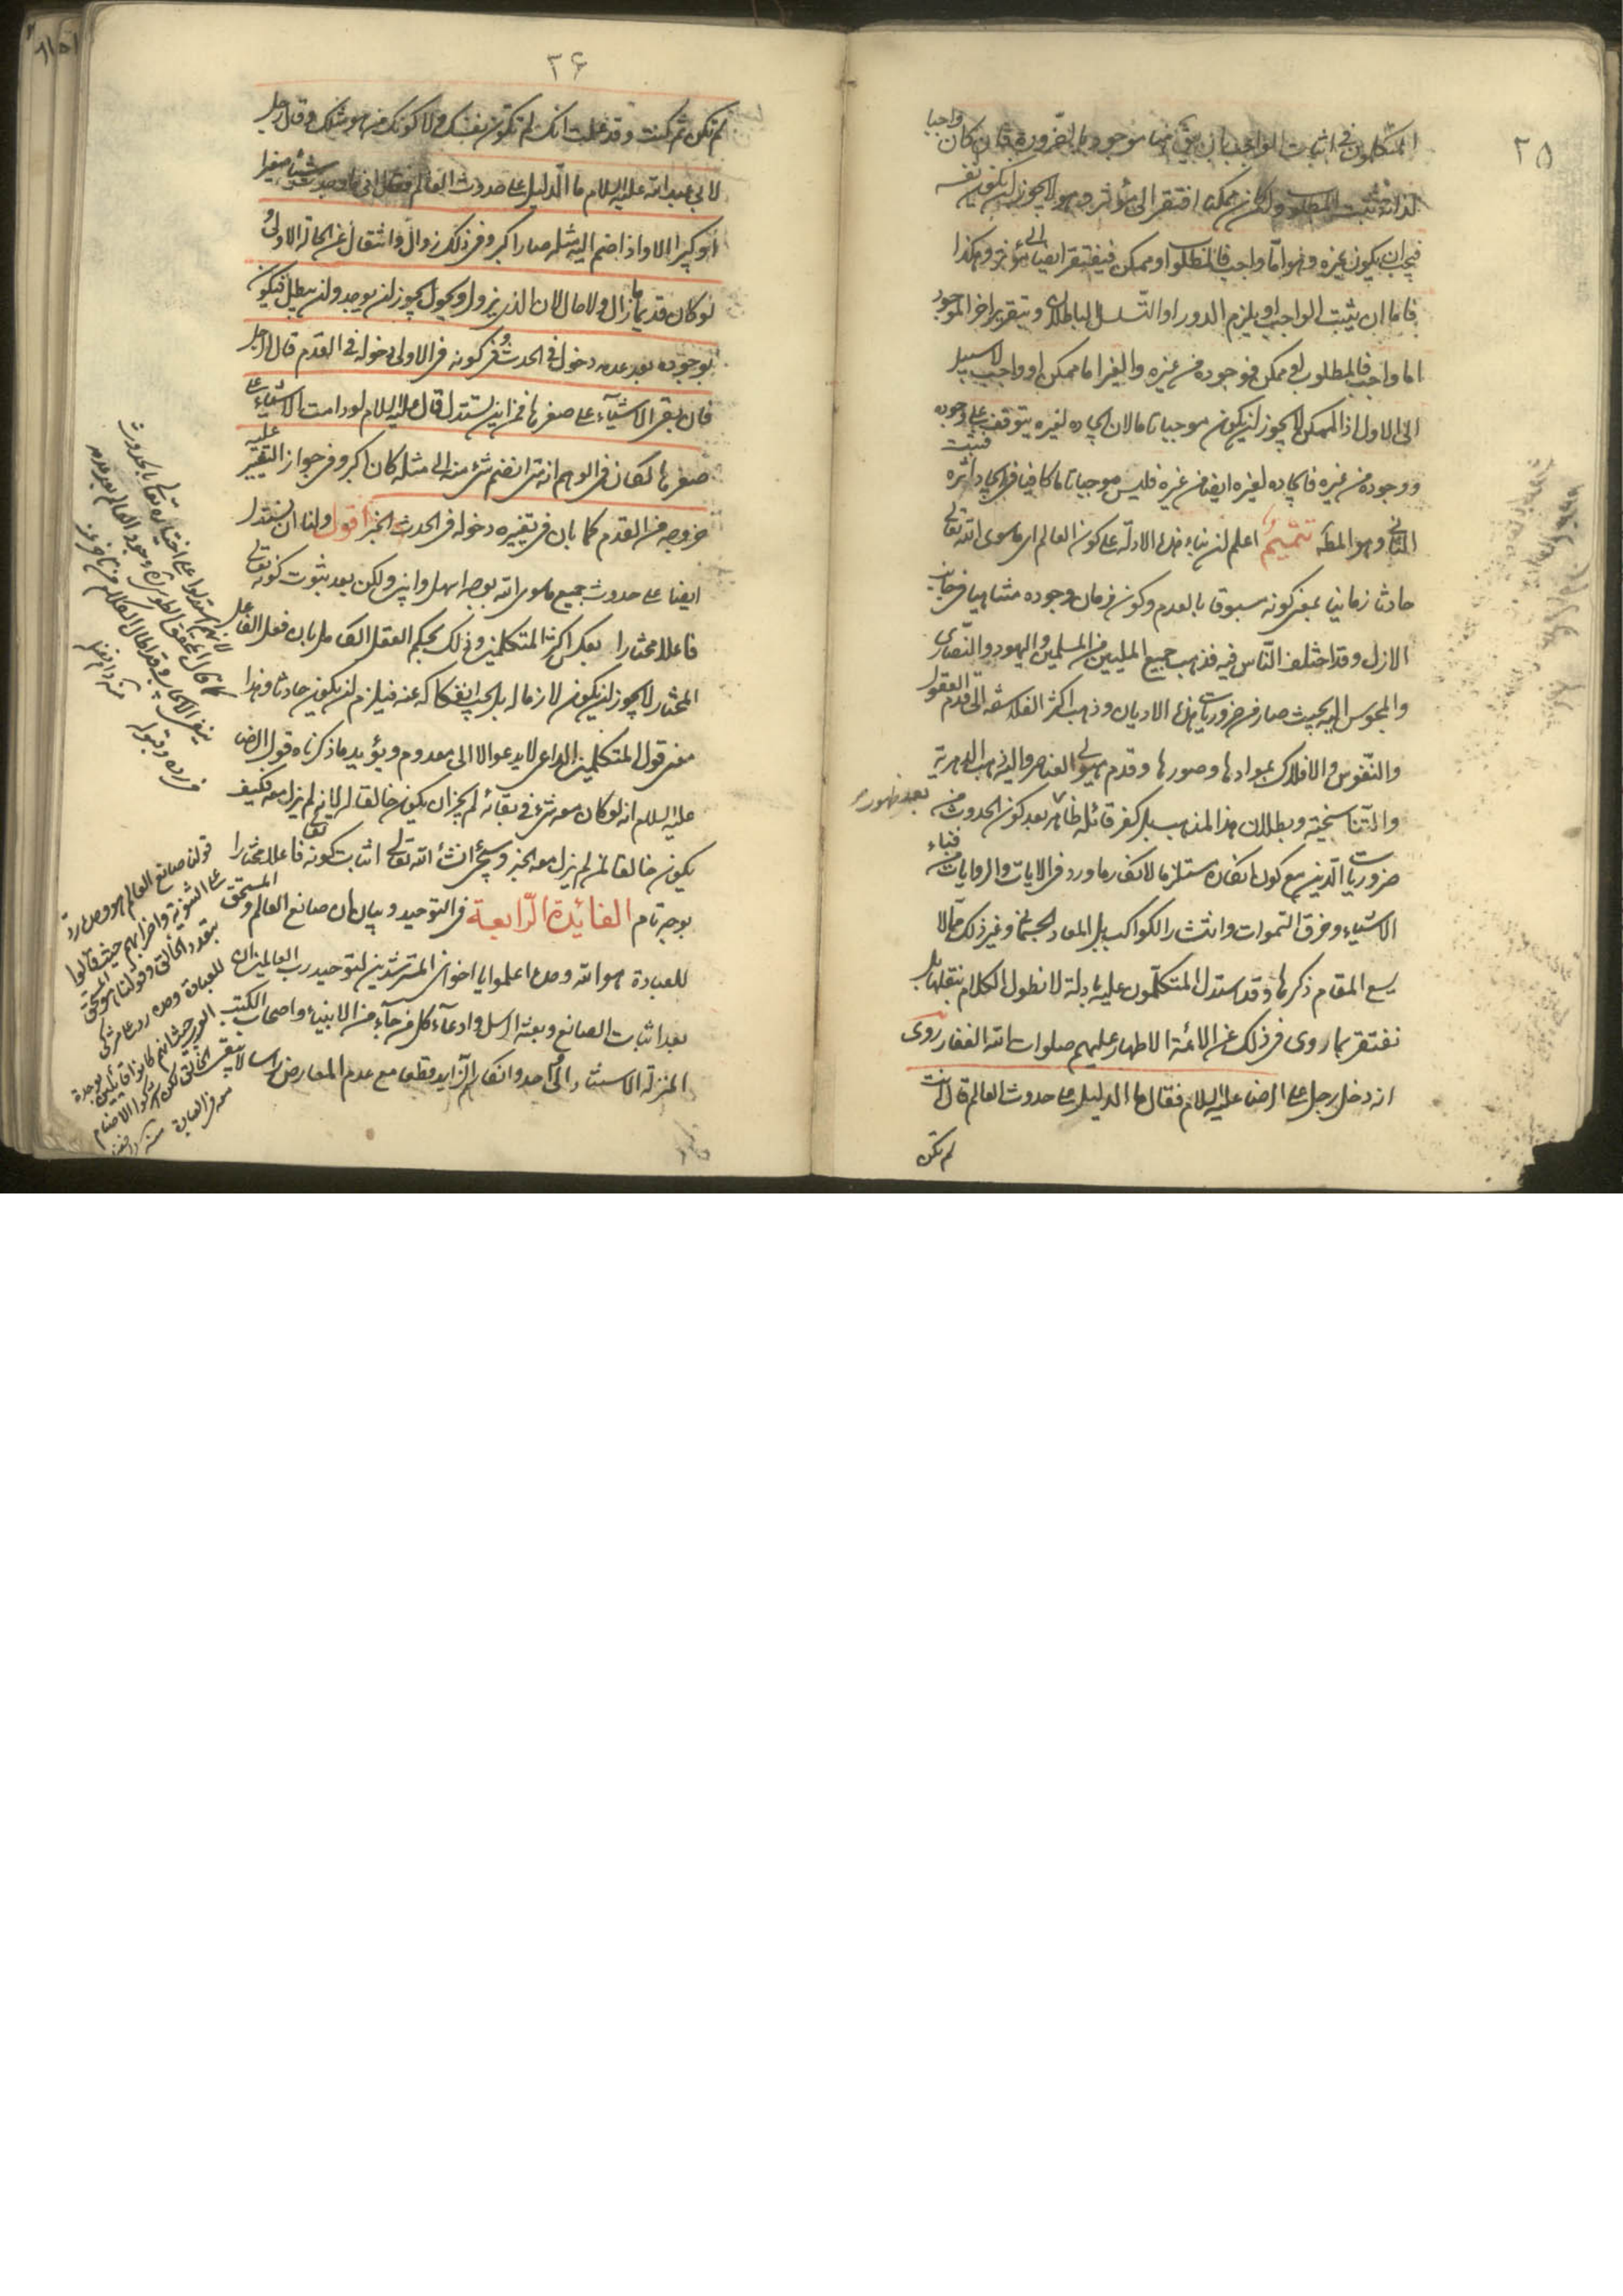 ٢٥
المتكلمون في اثبات الواجب بان يقال هنا موجود بالضرورة فان كان واجبا
لذاته ثبت المطلوب وان كان ممكنا افتقر الى مؤثر وهو لا يجوز ان يكون نفسه
فيجب ان يكون غيره وهو امّا واجب فالمطلوب او ممكن فيفتقر ايضا الى مؤثر وهكذا
فاما ان يثبت الواجب او يلزم الدور او التسلسل الباطلان وبتقرير اخر الموجود
اما واجب فالمطلوب او ممكن فوجوده من غيره والغير اما ممكن او واجب لا سبيل
الى الاول اذ الممكن لا يجوز ان يكون موجبا تاما لان ايجاده لغيره يتوقف على وجوده
ووجوده من غيره فايجاده لغيره ايضا من غيره فليس موجبا تاما كافيا في ايجاد اثره فثبت
الثاني وهو المط تتميم اعلم ان بناء هذه الادلة على كون العالم اى ما سوى الله تعالى
حادثا زمانيا بمعنى كونه مسبوقا بالعدم وكون زمان وجوده متناهيا في جانب
الازل وقد اختلف الناس فيه فذهب جميع المليين من المسلمين واليهود والنصارى
والمجوس اليه بحيث صار من ضروريات هذه الاديان وذهب اكثر الفلاسفة الى قدم العقول
والنفوس والافلاك بموادها وصورها وقدم هيولى العناصر واليه ذهب الدهرية
والتناسخية وبطلان هذا المذهب بل كفر قائله ظاهر بعد كون الحدوث من
بعد ظهوره
ضروريات الدين مع كون انكاره مستلزما لانكار ما ورد في الايات والروايات من فناء
الاشياء وخرق السموات وانتشار الكواكب بل المعاد الجسماني وغير ذلك مما لا
يسع المقام ذكرها وقد استدل المتكلمون عليه بادلة لا نطول الكلام بنقلها بل
نفتقر بما روى في ذلك عن الائمة الاطهار عليهم صلوات الله الغفار روى
انه دخل رجل على الرضا عليه السلام فقال ما الدليل على حدوث العالم قال انت
لم تكن
٢٦
لم تكن ثم كنت وقد علمت انك لم تكون نفسك ولا كونك من هو مثلك وقال رجل
لابي عبد الله عليه السلام ما الدليل على حدوث العالم فقال اني ما وجدت شيئا صغيرا
او كبيرا الا واذا ضم اليه مثله صار اكبر وفي ذلك زوال وانتقال عن الحالة الاولى
لو كان قديما ما زال ولا حال لان الذى يزول ويحول يجوز ان يوجد وان يبطل فيكون
بوجوده بعد عدمه دخول في الحدث وفي كونه في الاولى دخوله في القدم قال الرجل
فان بقى الاشياء على صغرها فمن اين تستدل قال عليه السلام لو دامت الاشياء على
صغرها لكان في الوهم انه متى انضم شئ منه الى مثله كان اكبر وفي جواز التغيير عليه
خروجه من القدم كما بان في تغييره دخوله في الحدث الخبر اقول ولنا ان نستدل
ايضا على حدوث جميع ما سوى الله بوجه اسهل ولكن بعد ثبوت كونه تعالى
فاعلا مختارا بعكس اكثر المتكلمين وذلك بحكم العقل الكامل بان فعل الفاعل
المختار لا يجوز ان يكون لازما له بل يجب انفكاكه عنه فيلزم ان يكون حادثا وهذا
معنى قول المتكلمين الداعى لا يدعو الا الى معدوم ويؤيد ما ذكرناه قول الرضا
عليه السلام انه لو كان معه شئ في بقائه لم يجز ان يكون خالقا له لانه لم يزل معه فكيف
يكون خالقا لمن لم يزل معه الخبر وسيجئ انشاء الله تعالى اثبات كونه تعالى فاعلا مختارا
بوجه تام الفائدة الرّابعة في التوحيد وبيان ان صانع العالم والمستحق
للعبادة هو الله وحده اعلموا يا اخوان المسترشدين لتوحيد رب العالمين ان
بعد اثبات الصانع وبعثة الرسل وادعاء كل من جاء من الانبياء واصحاب الكتب
المنزلة الاستناد الى الواحد وانكارهم الزايد قطعا مع عدم المعارض راسا لا يبقى
لانهم استدلوا على اختياره تعالى بالحدوث
كما قال المحقق الطوسي وجود العالم بعد عدمه
ينفى الايجاب
قولنا صانع العالم هو وحده رد
على الثنوية واضرابهم حيث قالوا
بتعدد الخالق وقولنا هو المستحق
للعبادة وحده رد على مشركى
العرب حيث انهم كانوا قائلين بوحدة
الخالق لكن اشركوا الاصنام
معه في العبادة